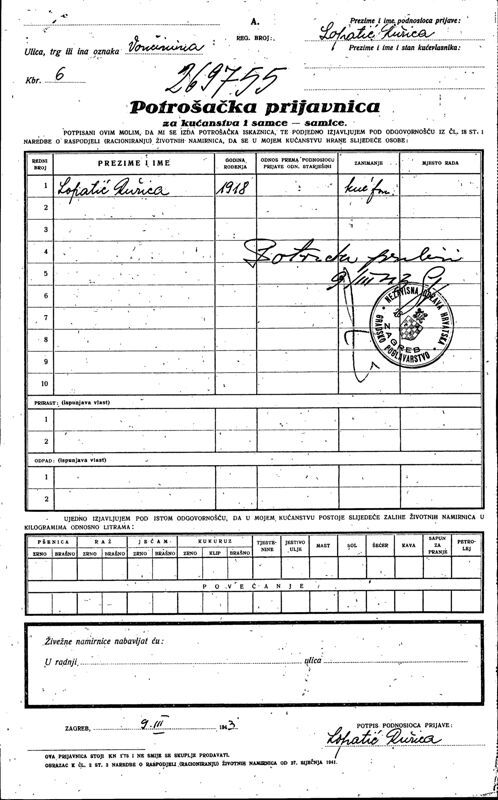 A.
REG. BROJ:
Prezime i ime podnosioca prijave:
Lopatić Ružica
Ulica, trg ili ina oznaka Vončinina
Prezime i ime i stan kućevlasnika:
Kbr. 6
269755
Potrošačka prijavnica
za kućanstva i samce — samice.
POTPISANI OVIM MOLIM, DA MI SE IZDA POTROŠAČKA ISKAZNICA, TE PODJEDNO IZJAVLJUJEM POD ODGOVORNOŠĆU IZ ČL. 18 ST. 1
NAREDBE O RASPODJELI (RACIONIRANJU) ŽIVOTNIH NAMIRNICA, DA SE U MOJEM KUĆANSTVU HRANE SLIJEDEĆE OSOBE:
REDNI BROJ PREZIME I IME GODINA ROĐENJA ODNOS PREMA PODNOSIOCU PRIJAVE ODN. STARJEŠINI ZANIMANJE MJESTO RADA
1 Lopatić Ružica 1918
2
3
4
5 9/III
6
7
8
9
10
NEZAVISNA DRŽAVA HRVATSKA
GRADSKO POGLAVARSTVO
ZAGREB
PRIRAST: (ispunjava vlast)
1
2
ODPAD: (ispunjava vlast)
1
2
UJEDNO IZJAVLJUJEM POD ISTOM ODGOVORNOŠĆU, DA U MOJEM KUĆANSTVU POSTOJE SLIJEDEĆE ZALIHE ŽIVOTNIH NAMIRNICA U
KILOGRAMIMA ODNOSNO LITRAMA:
PŠENICA RAŽ JEČAM KUKURUZ TJESTENINE JESTIVO ULJE MAST SOL ŠEĆER KAVA SAPUN ZA PRANJE PETROLEJ
ZRNO BRAŠNO ZRNO BRAŠNO ZRNO BRAŠNO ZRNO KLIP BRAŠNO
POVEĆANJE
Živežne namirnice nabavljat ću:
U radnji ulica
ZAGREB, 9. III 1943.
POTPIS PODNOSIOCA PRIJAVE:
Lopatić Ružica
OVA PRIJAVNICA STOJI KN 1'75 I NE SMIJE SE SKUPLJE PRODAVATI.
OBRAZAC K ČL. 2 ST. 3 NAREDBE O RASPODJELI (RACIONIRANJU) ŽIVOTNIH NAMIRNICA OD 27. SIJEČNJA 1941.